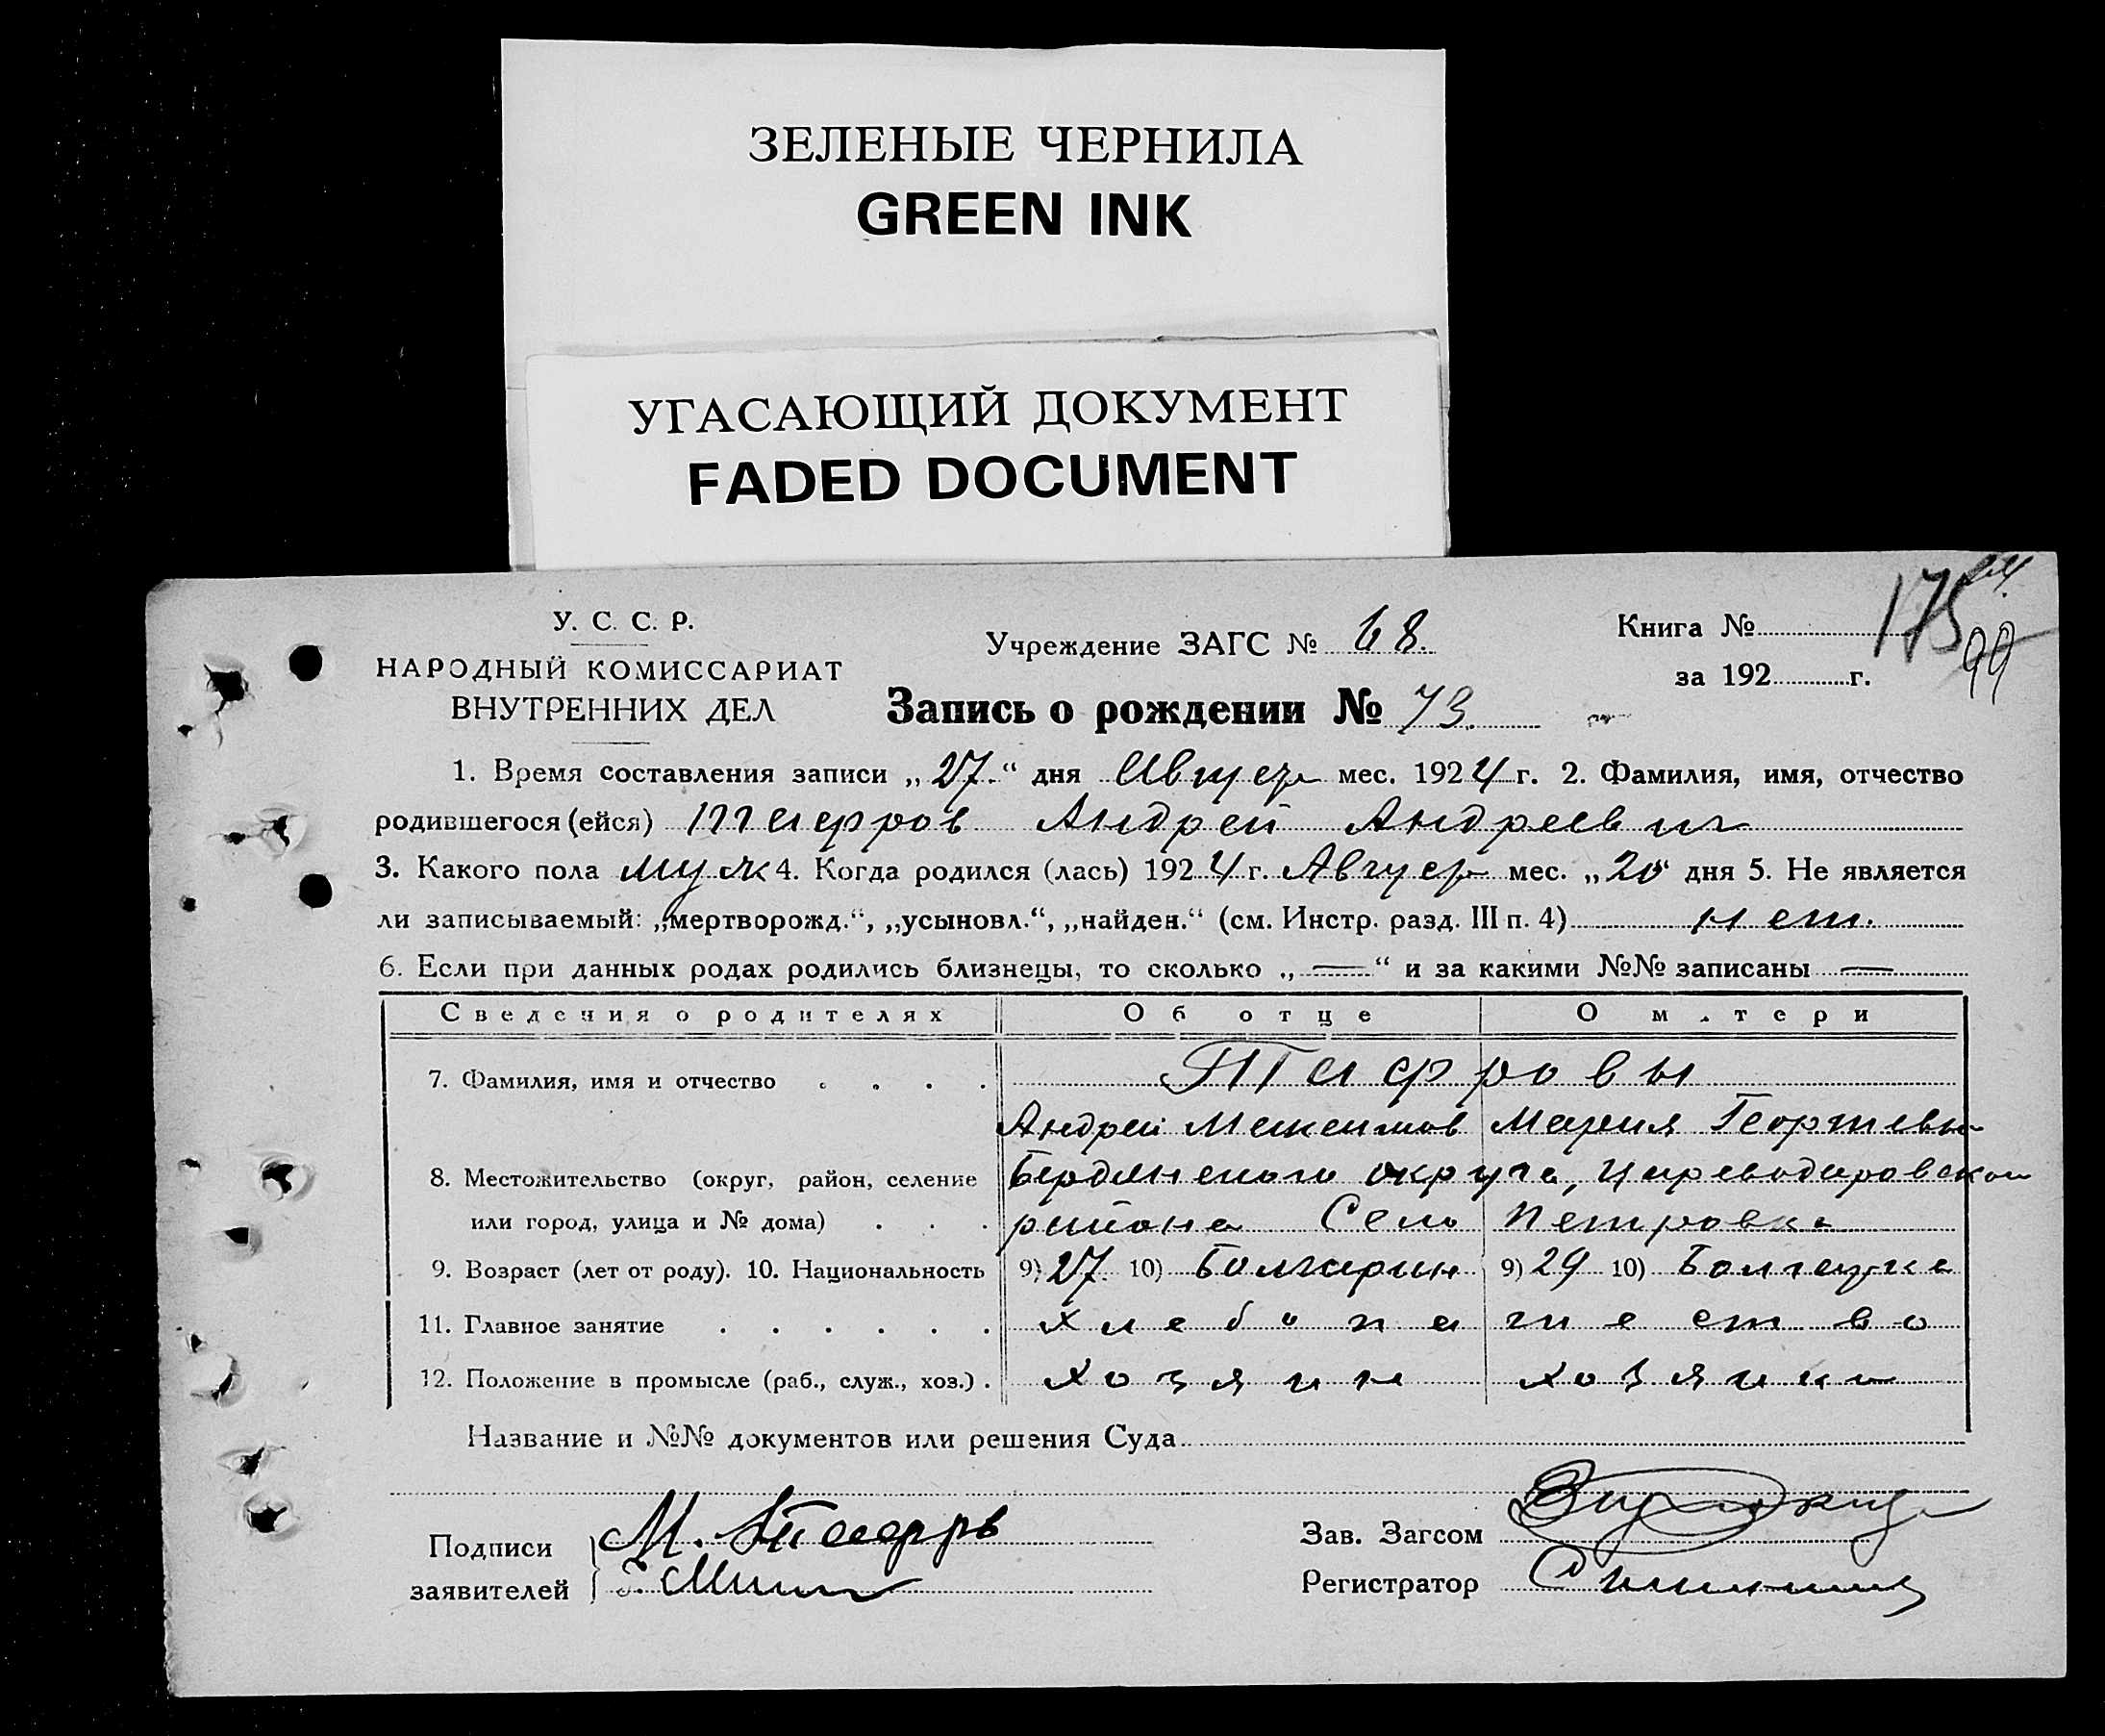 ЗЕЛЕНЫЕ ЧЕРНИЛА
GREEN INK
УГАСАЮЩИЙ ДОКУМЕНТ
FADED DOCUMENT
У. С. С. Р.
НАРОДНЫЙ КОМИССАРИАТ
ВНУТРЕННИХ ДЕЛ
Учреждение ЗАГС № 68.
Книга № 175
99
за 192 г.
Запись о рождении № 73.
1. Время составления записи „27.“ дня Август мес. 1924 г. 2. Фамилия, имя, отчество
родившегося (ейся) Андрей Андреевич
3. Какого пола муж 4. Когда родился (лась) 1924 г. Август мес. „ “ дня 5. Не является
ли записываемый: „мертворожд.“, „усыновл.“, „найден.“ (см. Инстр. разд. III п. 4) нет.
6. Если при данных родах родились близнецы, то сколько „—“ и за какими №№ записаны —
Сведения о родителях Об отце О матери
7. Фамилия, имя и отчество . . . .
Андрей Мария Георгиевна
8. Местожительство (округ, район, селение Бердянского округа, Цареводаровского
или город, улица и № дома) . . . района Село Петровка
9. Возраст (лет от роду). 10. Национальность 9) 27. 10) Болгарин 9) 29 10) Болгарка
11. Главное занятие . . . . . . хлебопашество
12. Положение в промысле (раб., служ., хоз.) . хозяин хозяйка
Название и №№ документов или решения Суда
Подписи
заявителей
М.
Зав. Загсом
Регистратор